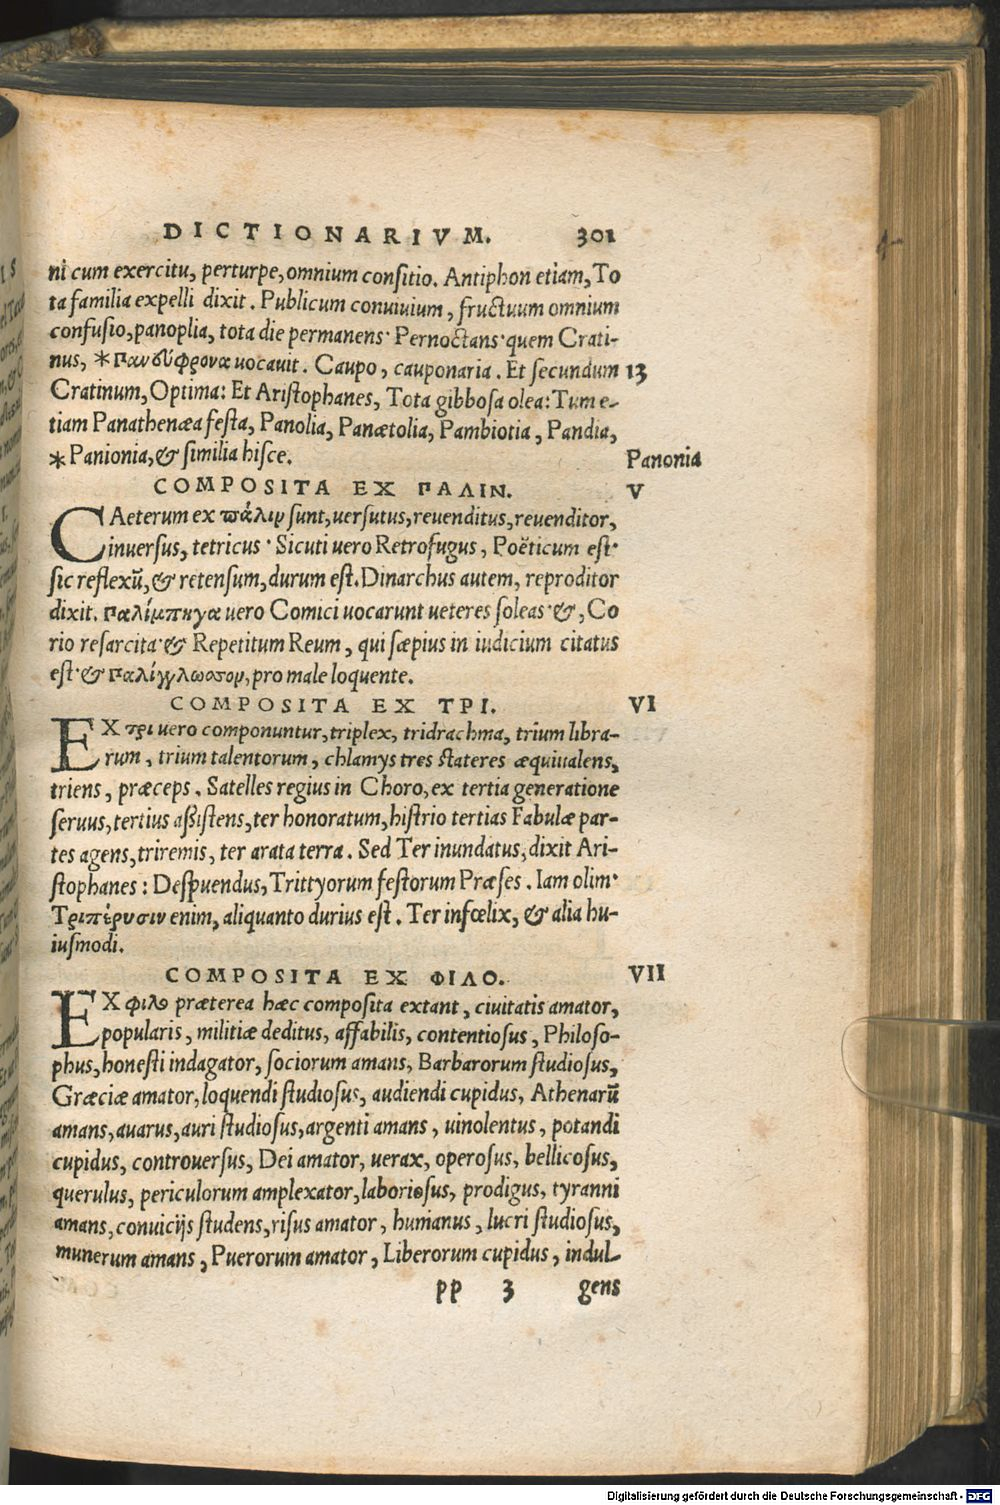 DICTIONARIVM. 301
ni cum exercitu, perturpe, omnium consitio. Antiphon etiam, To
ta familia expelli dixit. Publicum conuiuium, fructuum omnium
confusio, panoplia, tota die permanens· Pernoctans· quem Crati-
nus, *πανσύφρονα uocauit. Caupo, cauponaria. Et secundum 13
Cratinum, Optima: Et Aristophanes, Tota gibbosa olea: Tum e-
tiam Panathenæa festa, Panolia, Panætolia, Pambiotia, Pandia,
* Panionia, & similia hisce. Panonia
COMPOSITA EX ΠΑΛΙΝ. V
CAeterum ex πάλιν sunt, uersutus, reuenditus, reuenditor,
inuersus, tetricus· Sicuti uero Retrofugus, Poëticum est·
sic reflexū, & retensum, durum est. Dinarchus autem, reproditor
dixit. παλίμπηγα uero Comici uocarunt ueteres soleas· &, Co
rio resarcita· & Repetitum Reum, qui sæpius in iudicium citatus
est· & παλίγγλωσσον, pro male loquente.
COMPOSITA EX ΤΡΙ. VI
EX τρι uero componuntur, triplex, tridrachma, trium libra-
rum, trium talentorum, chlamys tres stateres æquiualens,
triens, præceps. Satelles regius in Choro, ex tertia generatione
seruus, tertius assistens, ter honoratum, histrio tertias Fabulæ par-
tes agens, triremis, ter arata terra. Sed Ter inundatus, dixit Ari-
stophanes: Despuendus, Trittyorum festorum Præses. Iam olim·
Τριπέρυσιν enim, aliquanto durius est. Ter infœlix, & alia hu-
iusmodi.
COMPOSITA EX ΦΙΛΟ. VII
EX φιλο præterea hæc composita extant, ciuitatis amator,
popularis, militiæ deditus, affabilis, contentiosus, Philoso-
phus, honesti indagator, sociorum amans, Barbarorum studiosus,
Græciæ amator, loquendi studiosus, audiendi cupidus, Athenarū
amans, auarus, auri studiosus, argenti amans, uinolentus, potandi
cupidus, controuersus, Dei amator, uerax, operosus, bellicosus,
querulus, periculorum amplexator, laboriosus, prodigus, tyranni
amans, conuicijs studens, risus amator, humanus, lucri studiosus,
munerum amans, Puerorum amator, Liberorum cupidus, indul-
pp 3 gens
Digitalisierung gefördert durch die Deutsche Forschungsgemeinschaft - DFG